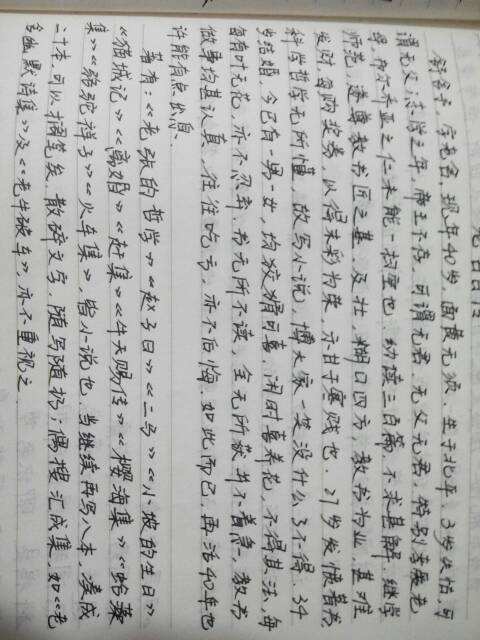 老舍自传
舒舍予，字老舍，现年40岁，面黄无须，生于北平，3岁失怙，可
谓无父；志学之年，帝王不存，可谓无君。无父无君，特别孝爱老
母，布尔乔亚之仁未能一扫空也。幼读三百篇，不求甚解。继学
师范，遂奠教书匠之基。及壮，糊口四方，教书为业，甚难
发财；每购奖券，以得末彩为荣，示甘于寒贱也。27岁发愤著书，
科学哲学无所懂，故写小说，博大家一笑没什么了不得。34
岁结婚，今已有一男一女，均狡猾可喜。闲时喜养花，不得其法，每
每有叶无花，亦不忍弃。书无所不读，全无所获并不着急。教书
做事均甚认真，往往吃亏，亦不后悔。如此而已，再活40年也
许能有点出息。
著有：《老张的哲学》《赵子曰》《二马》《小坡的生日》
《猫城记》《离婚》《赶集》《牛天赐传》《樱海集》《蛤藻
集》《骆驼祥子》《火车集》，皆小说也。当继续再写八本，凑成
二十本，可以搁笔矣。散碎文字，随写随扔；偶搜汇成集，如《老
舍幽默诗集》及《老牛破车》，亦不重视之。